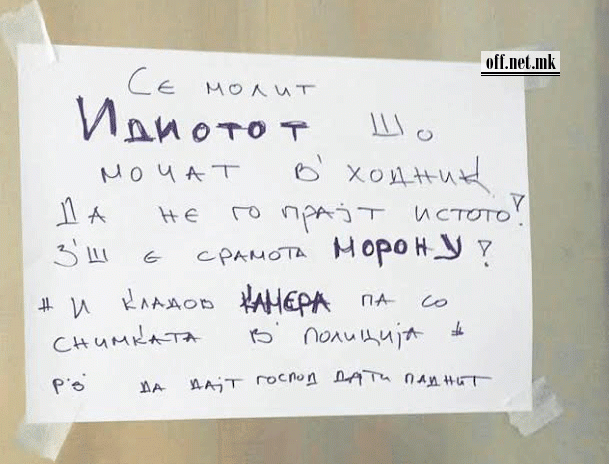 off.net.mk
Се молит
Идиотот шо
мочат в' ходник
Да не го прајт истото!
З'ш е срамота морону?
# и кладов камера па со
снимката в' полиција #
р.ѕ да дајт господ дати паднит